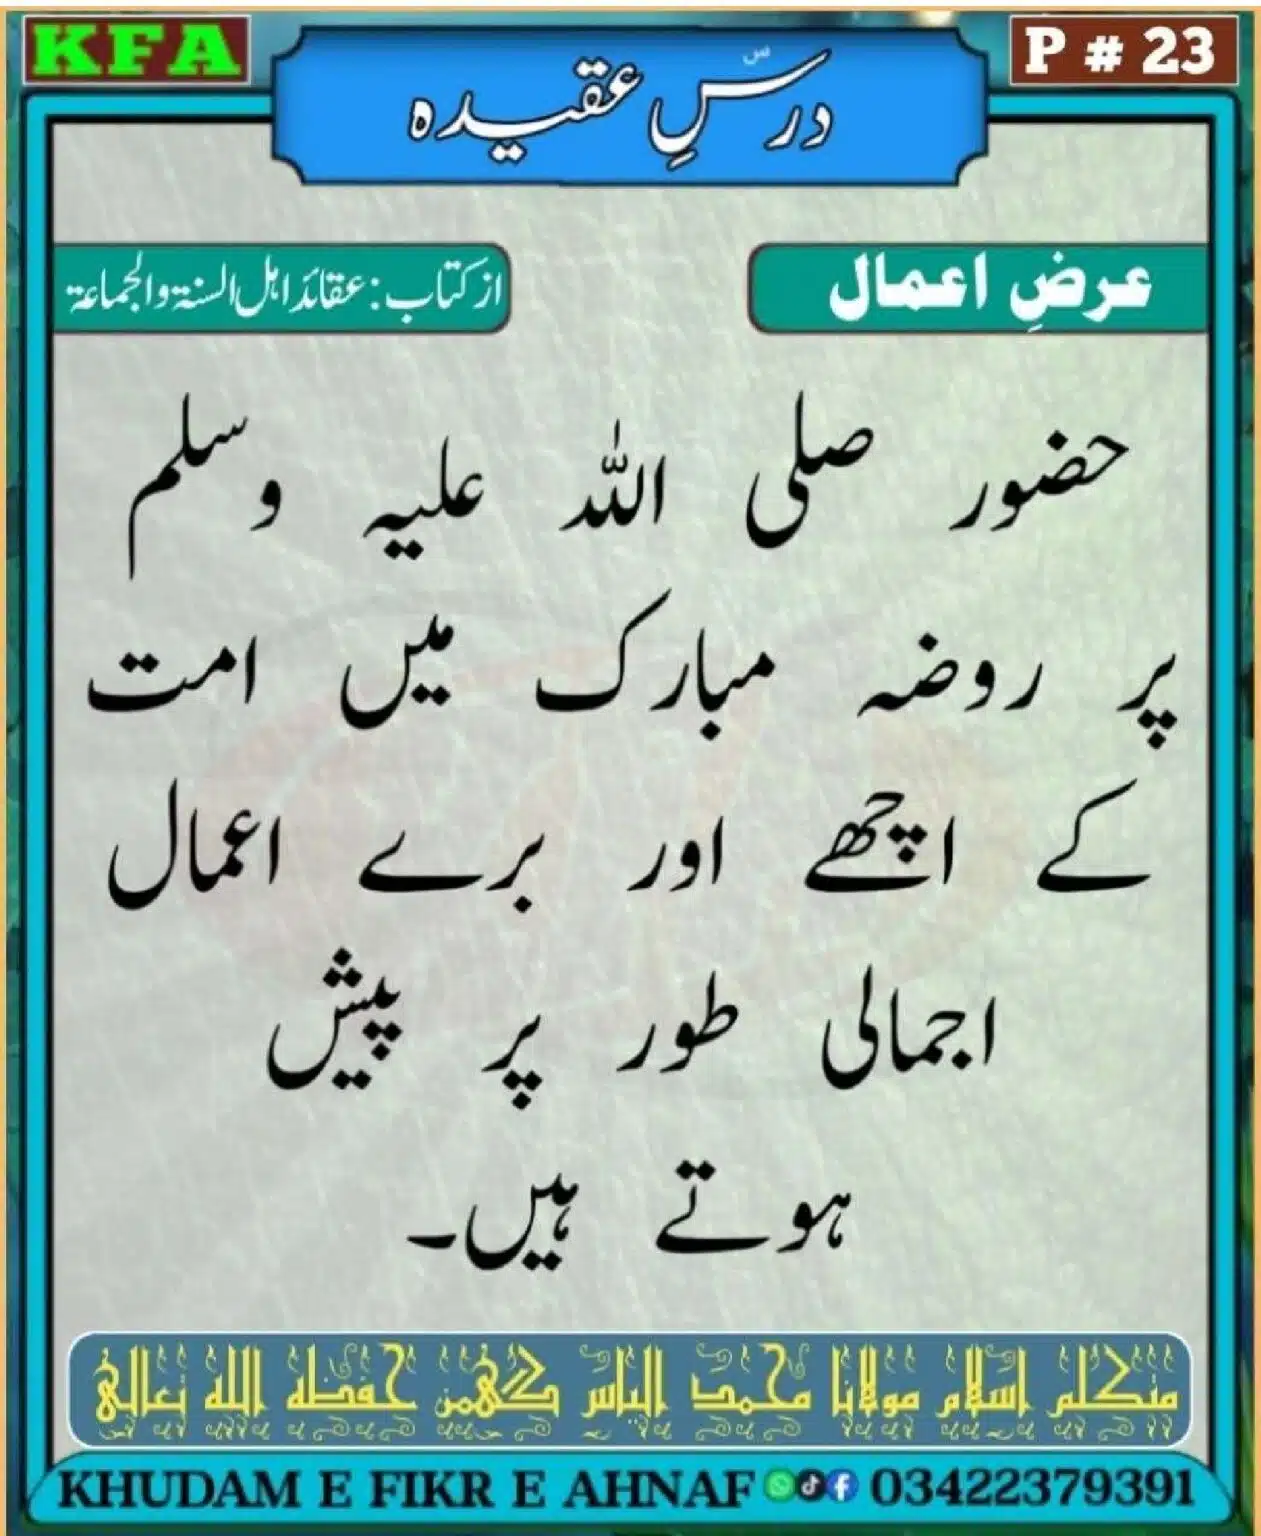 KFA
درسِ عقیدہ
P # 23
عرضِ اعمال
از کتاب: عقائد اہل السنۃ والجماعۃ
حضور صلی اللہ علیہ وسلم
پر روضہ مبارک میں امت
کے اچھے اور برے اعمال
اجمالی طور پر پیش
ہوتے ہیں۔
متکلم اسلام مولانا محمد الیاس گھمن حفظہ اللہ تعالیٰ
KHUDAM E FIKR E AHNAF 03422379391